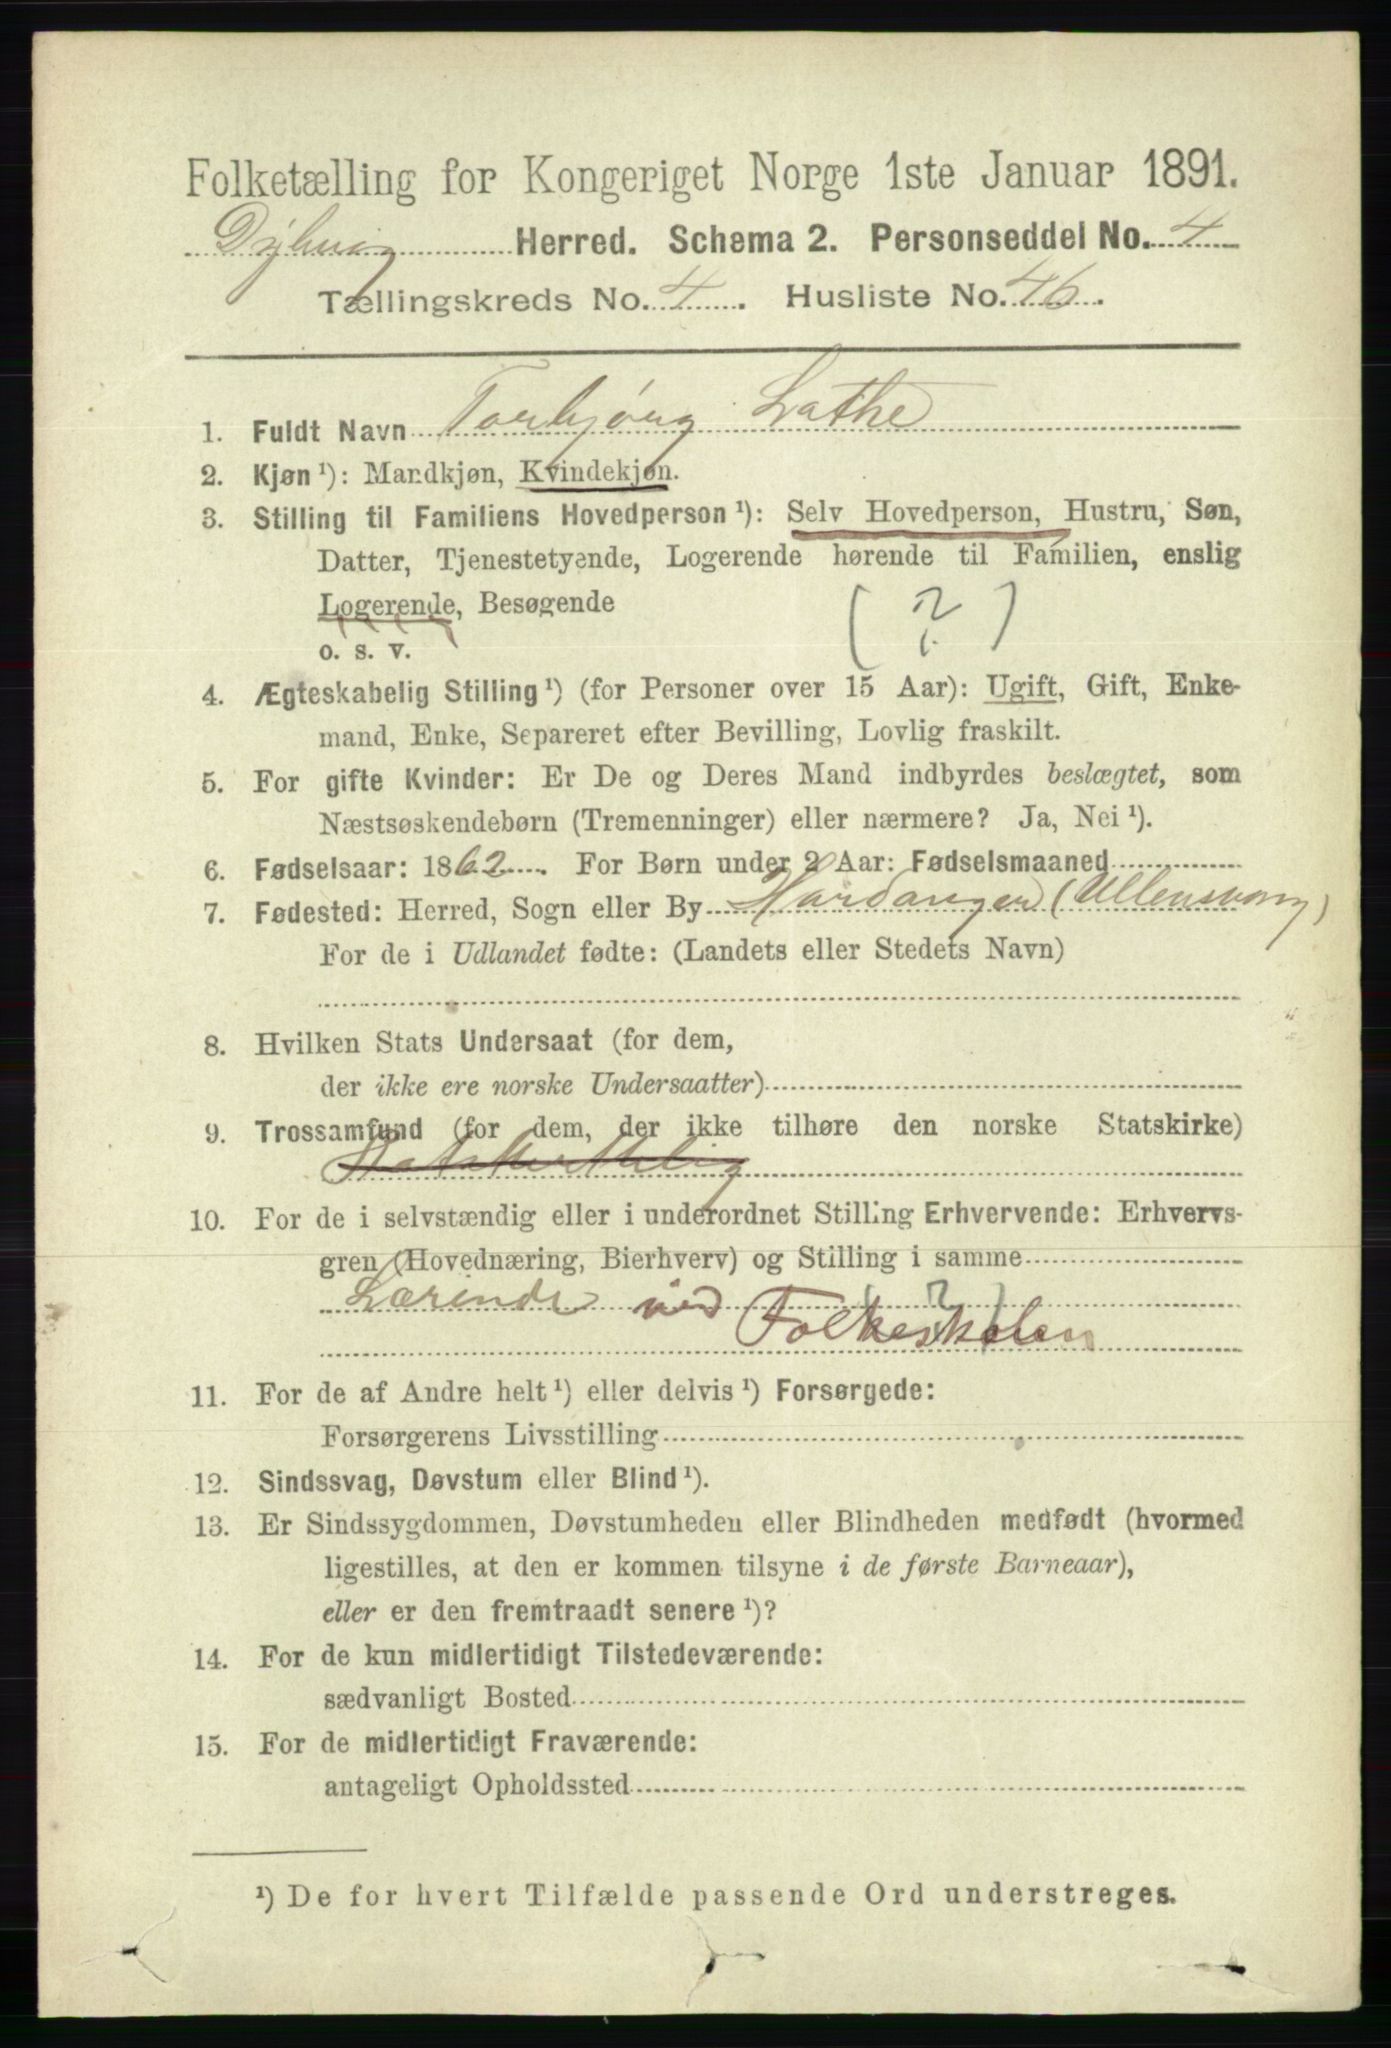 Folketælling for Kongeriget Norge 1ste Januar 1891.
Dybvig Herred. Schema 2. Personseddel No. 4
Tællingskreds No. 4. Husliste No. 46.
1. Fuldt Navn Torbjørg Lathe
2. Kjøn ¹): Mandkjøn, Kvindekjøn.
3. Stilling til Familiens Hovedperson ¹): Selv Hovedperson, Hustru, Søn,
Datter, Tjenestetyende, Logerende hørende til Familien, enslig
Logerende, Besøgende
o. s. v.
( ? )
4. Ægteskabelig Stilling ¹) (for Personer over 15 Aar): Ugift, Gift, Enke-
mand, Enke, Separeret efter Bevilling, Lovlig fraskilt.
5. For gifte Kvinder: Er De og Deres Mand indbyrdes beslægtet, som
Næstsøskendebørn (Tremenninger) eller nærmere? Ja, Nei ¹).
6. Fødselsaar: 1862. For Børn under 2 Aar: Fødselsmaaned
7. Fødested: Herred, Sogn eller By Hardanger (Ullensvang)
For de i Udlandet fødte: (Landets eller Stedets Navn)
8. Hvilken Stats Undersaat (for dem,
der ikke ere norske Undersaatter)
9. Trossamfund (for dem, der ikke tilhøre den norske Statskirke)
10. For de i selvstændig eller i underordnet Stilling Erhvervende: Erhvervs-
gren (Hovednæring, Bierhverv) og Stilling i samme
Lærinde ved ( ? )
Folkeskolen
11. For de af Andre helt ¹) eller delvis ¹) Forsørgede:
Forsørgerens Livsstilling
12. Sindssvag, Døvstum eller Blind ¹).
13. Er Sindssygdommen, Døvstumheden eller Blindheden medfødt (hvormed
ligestilles, at den er kommen tilsyne i de første Barneaar),
eller er den fremtraadt senere ¹)?
14. For de kun midlertidigt Tilstedeværende:
sædvanligt Bosted
15. For de midlertidigt Fraværende:
antageligt Opholdssted
¹) De for hvert Tilfælde passende Ord understreges.